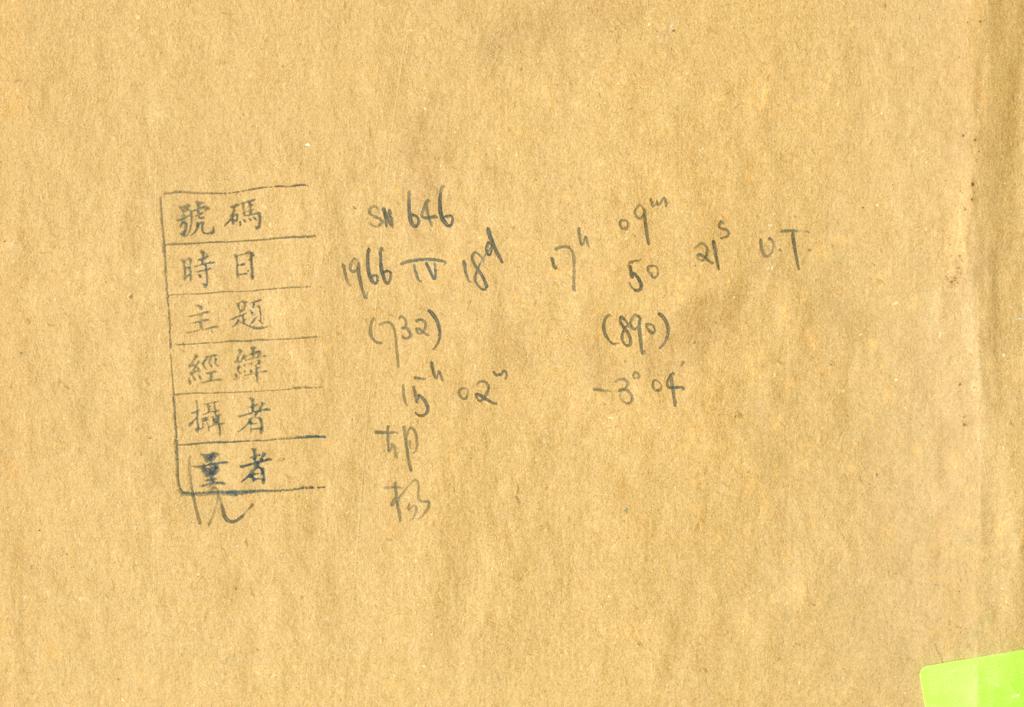 號碼 SN 646
時日 1966 IV 18d 17h 09m 50 21s U.T.
主題 (732) (890)
經緯 15h 02m -3° 04'
攝者
量者 杨